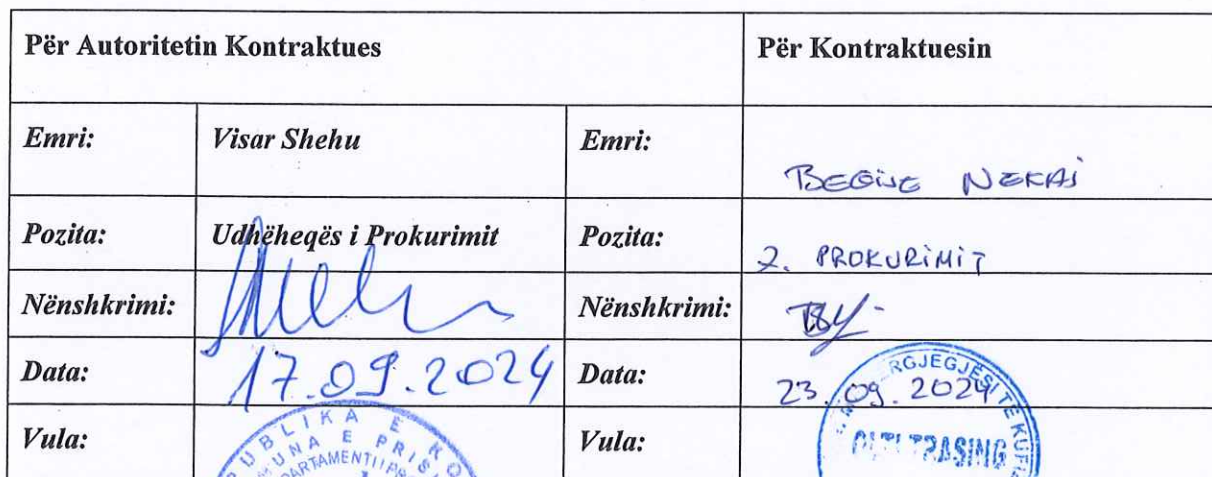 Për Autoritetin Kontraktues Për Kontraktuesin
Emri: Visar Shehu Emri: BEGIJE NEKAJ
Pozita: Udhëheqës i Prokurimit Pozita: Z. PROKURIMIT
Nënshkrimi: Nënshkrimi:
Data: 17.09.2024 Data: 23.09.2024
Vula: Vula: